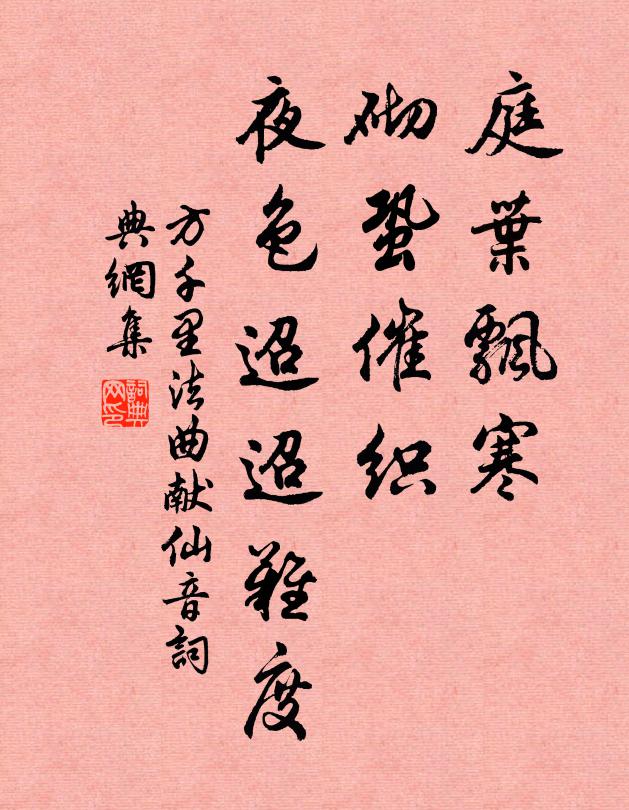 庭葉飄寒
砌蛩催织
夜色迢迢難度
方千里法曲献仙音詞
典網集
詞典网印